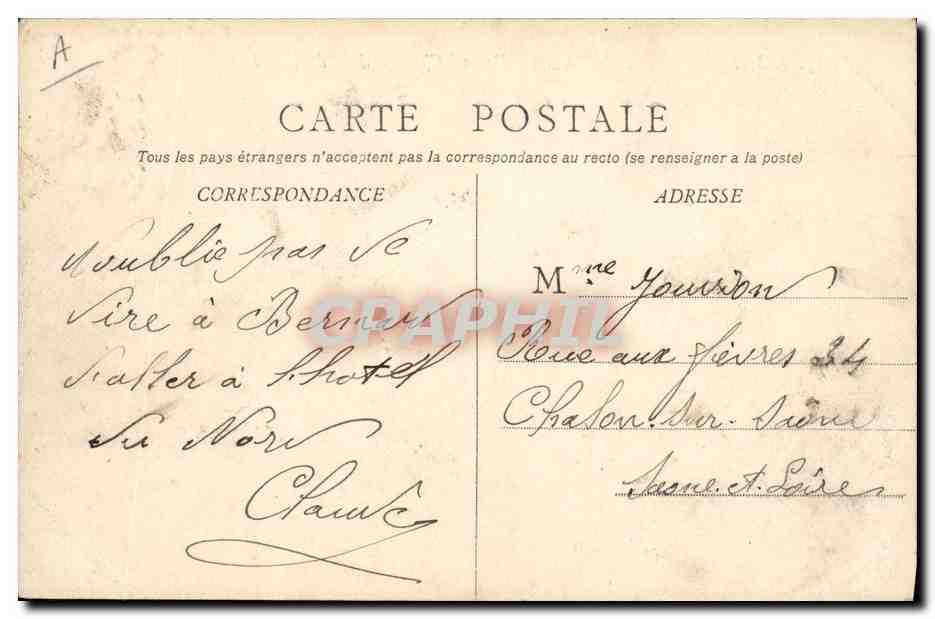 A
CARTE POSTALE
Tous les pays étrangers n'acceptent pas la correspondance au recto (se renseigner a la poste)
CORRESPONDANCE
noublie pas de
dire à Bernard
daller à lhotel
du Nord
Claude
ADRESSE
Mme Jourdon
Rue aux fèvres 34
Chalon-sur-Saône
Saone-et-Loire
CPAPHIL